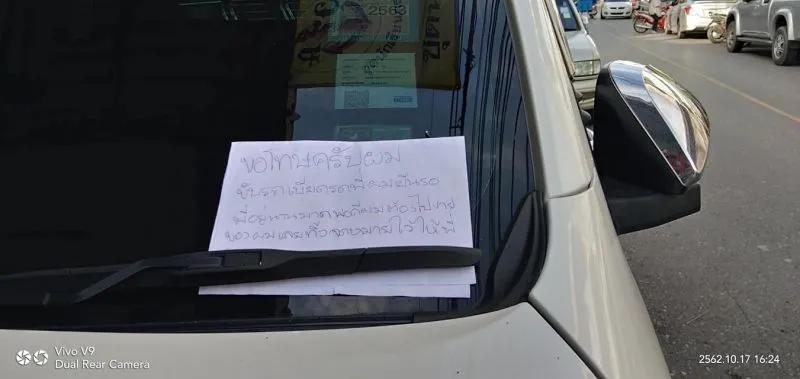 2563
ขอโทษครับผม
ขับรถเบียดรถพี่ ผมยืนรอ
พี่อยู่นานมาก พอดีผมต้องไปขาย
ของ ผมเลยทิ้งจดหมายไว้ให้พี่
Vivo V9
Dual Rear Camera
2562.10.17 16:24